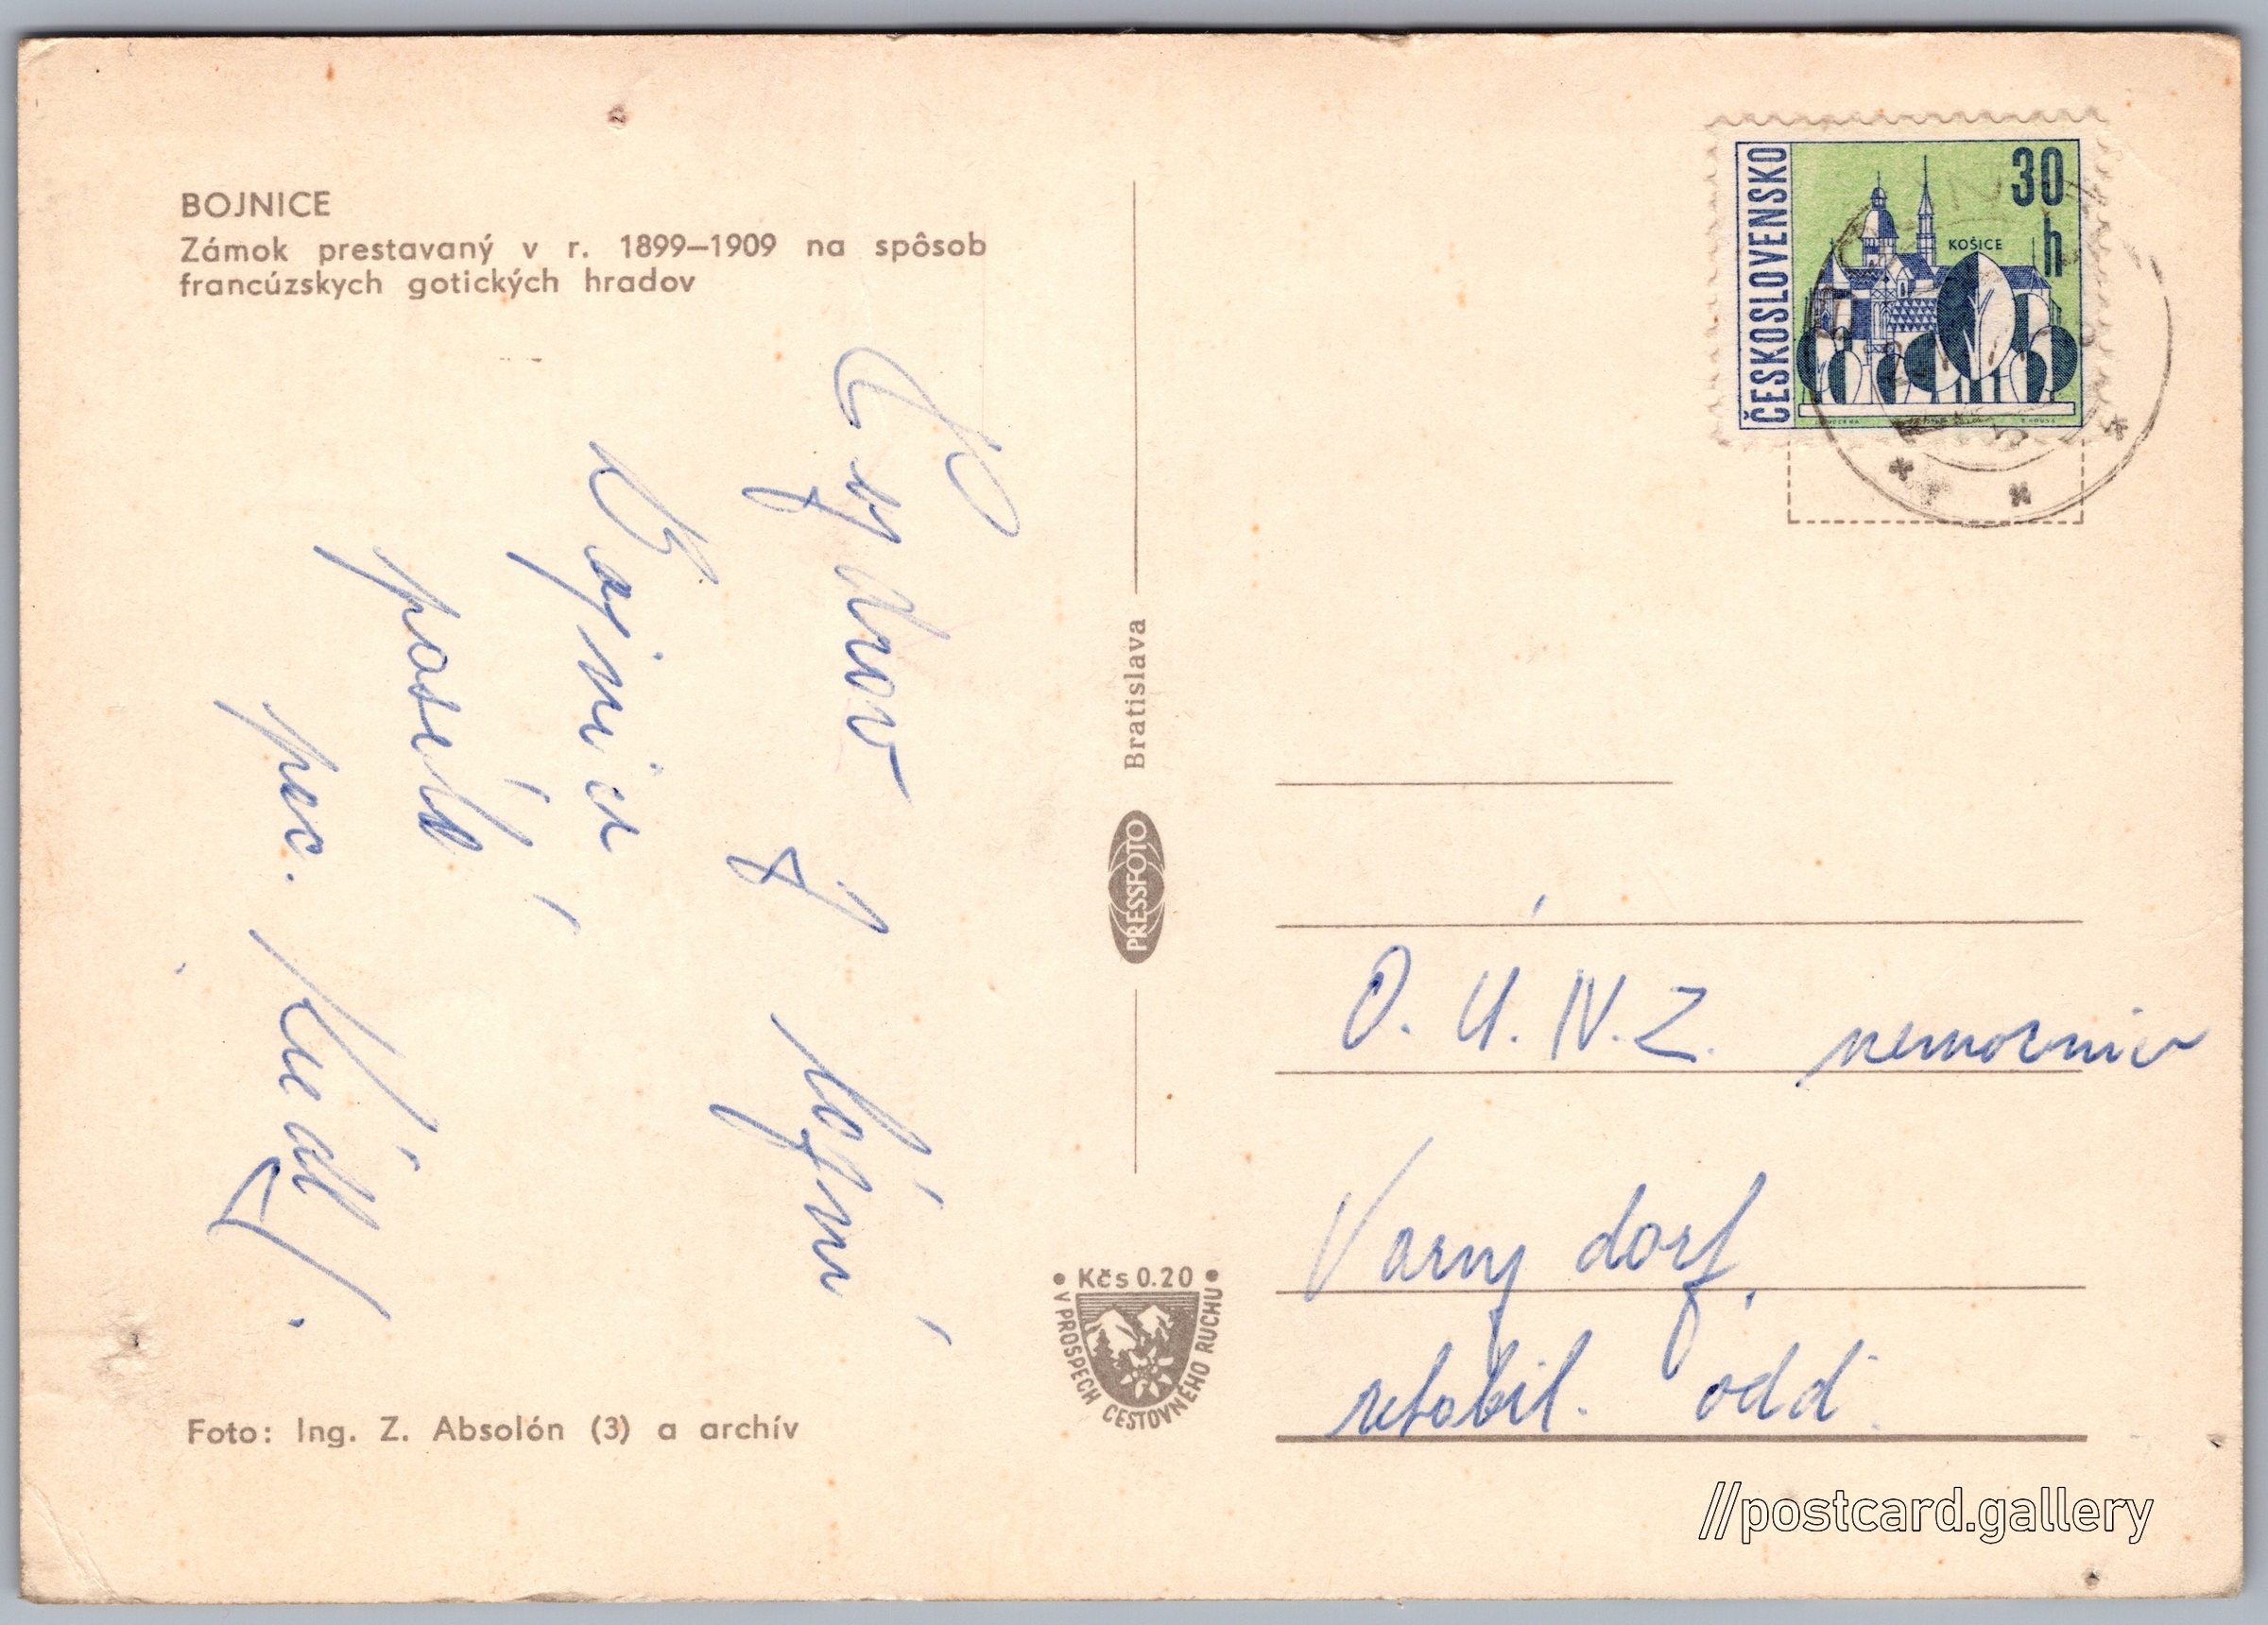 BOJNICE
Zámok prestavaný v r. 1899–1909 na spôsob
francúzskych gotických hradov
pozdrav z
Bojnice
posílá
pac.
Foto: Ing. Z. Absolón (3) a archív
Bratislava
PRESSFOTO
• Kčs 0.20 •
V PROSPECH CESTOVNÉHO RUCHU
ČESKOSLOVENSKO
30
h
KOŠICE
O. Ú. N. Z. nemocnice
Varnsdorf.
rehabil. odd.
//postcard.gallery